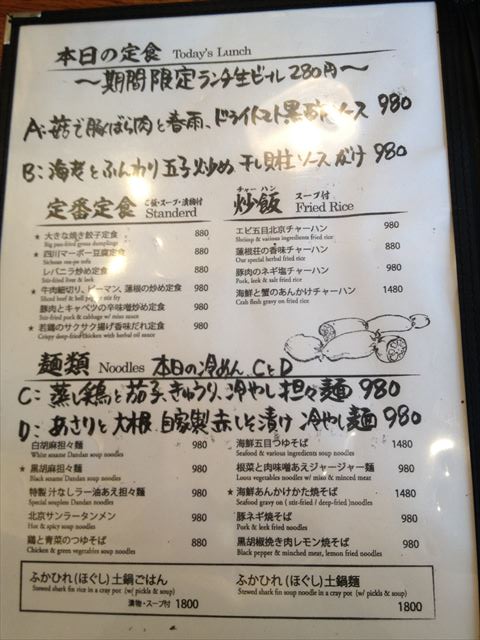 本日の定食 Today's Lunch
〜期間限定ランチ生ビール280円〜
A: 茹で豚ばら肉と春雨、ドライトマト黒酢ソース 980
B: 海老とふんわり玉子炒め 干し貝柱ソースがけ 980
定番定食 ご飯・スープ・漬物付 Standerd
★ 大きな焼き餃子定食 880
Big pan-fried gyoza dumplings
★ 四川マーボー豆腐定食 880
Sichuan ma-po tofu
レバニラ炒め定食 880
Stir-fried liver & leek
★ 牛肉細切り、ピーマン、蓮根の炒め定食 980
Sliced beef & bell pepper stir fry
豚肉とキャベツの辛味噌炒め定食 880
Stir-fried pork & cabbage w/ miso sauce
★ 若鶏のサクサク揚げ香味だれ定食 880
Crispy deep-fried chicken with herbal oil sauce
炒飯 チャーハン スープ付 Fried Rice
エビ五目北京チャーハン 980
Shrimp & various ingredients fried rice
蓮根荘の香味チャーハン 880
Our special herbal fried rice
豚肉のネギ塩チャーハン 980
Pork, leek & salt fried rice
海鮮と蟹のあんかけチャーハン 1480
Crab flesh gravy on fried rice
麺類 Noodles 本日の冷めん CとD
C: 蒸し鶏と茄子、きゅうり、冷やし担々麺 980
D: あさりと大根 自家製赤しそ漬け 冷やし麺 980
白胡麻担々麺 980
White sesame Dandan soup noodles
★ 黒胡麻担々麺 980
Black sesame Dandan soup noodles
特製 汁なしラー油あえ担々麺 980
Special soupless Dandan noodles
北京サンラータンメン 980
Hot & spicy soup noodles
鶏と青菜のつゆそば 880
Chicken & green vegetables soup noodles
海鮮五目つゆそば 1480
Seafood & various ingredients soup noodles
根菜と肉味噌あえジャージャー麺 980
Loots vegetables noodles w/ miso & minced meat
★ 海鮮あんかけかた焼そば 1480
Seafood gravy on ( stir-fried / deep-fried )noodles
豚ネギ焼そば 980
Pork & leek fried noodles
黒胡椒挽き肉レモン焼そば 980
Black pepper & minched meat, lemon fried noodles
ふかひれ(ほぐし)土鍋ごはん
Stewed shark fin rice in a cray pot (w/ pickls & soup)
漬物・スープ付 1800
ふかひれ(ほぐし)土鍋麺
Stewed shark fin soup noodle in a cray pot (w/ pickls & soup)
1800